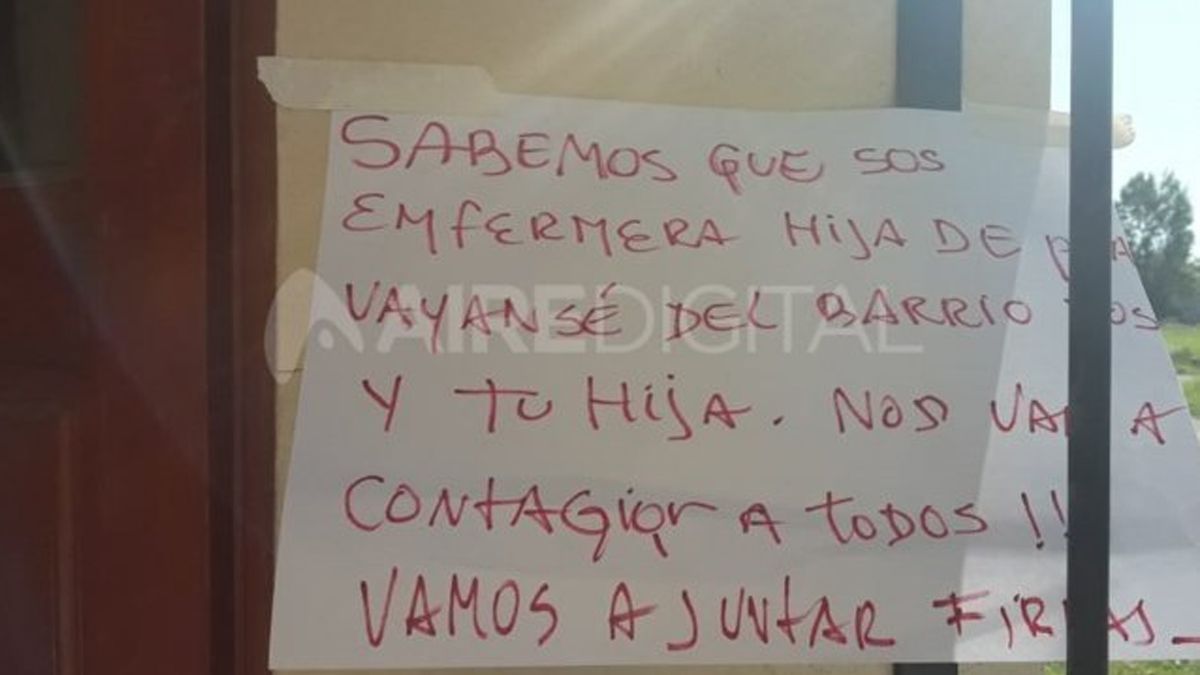 SABEMOS QUE SOS
EMFERMERA HIJA DE
VAYANSÉ DEL BARRIO
Y TU HIJA. NOS VAN A
CONTAGIAR A TODOS !!
VAMOS A JUNTAR FIRMAS_
AIREDIGITAL